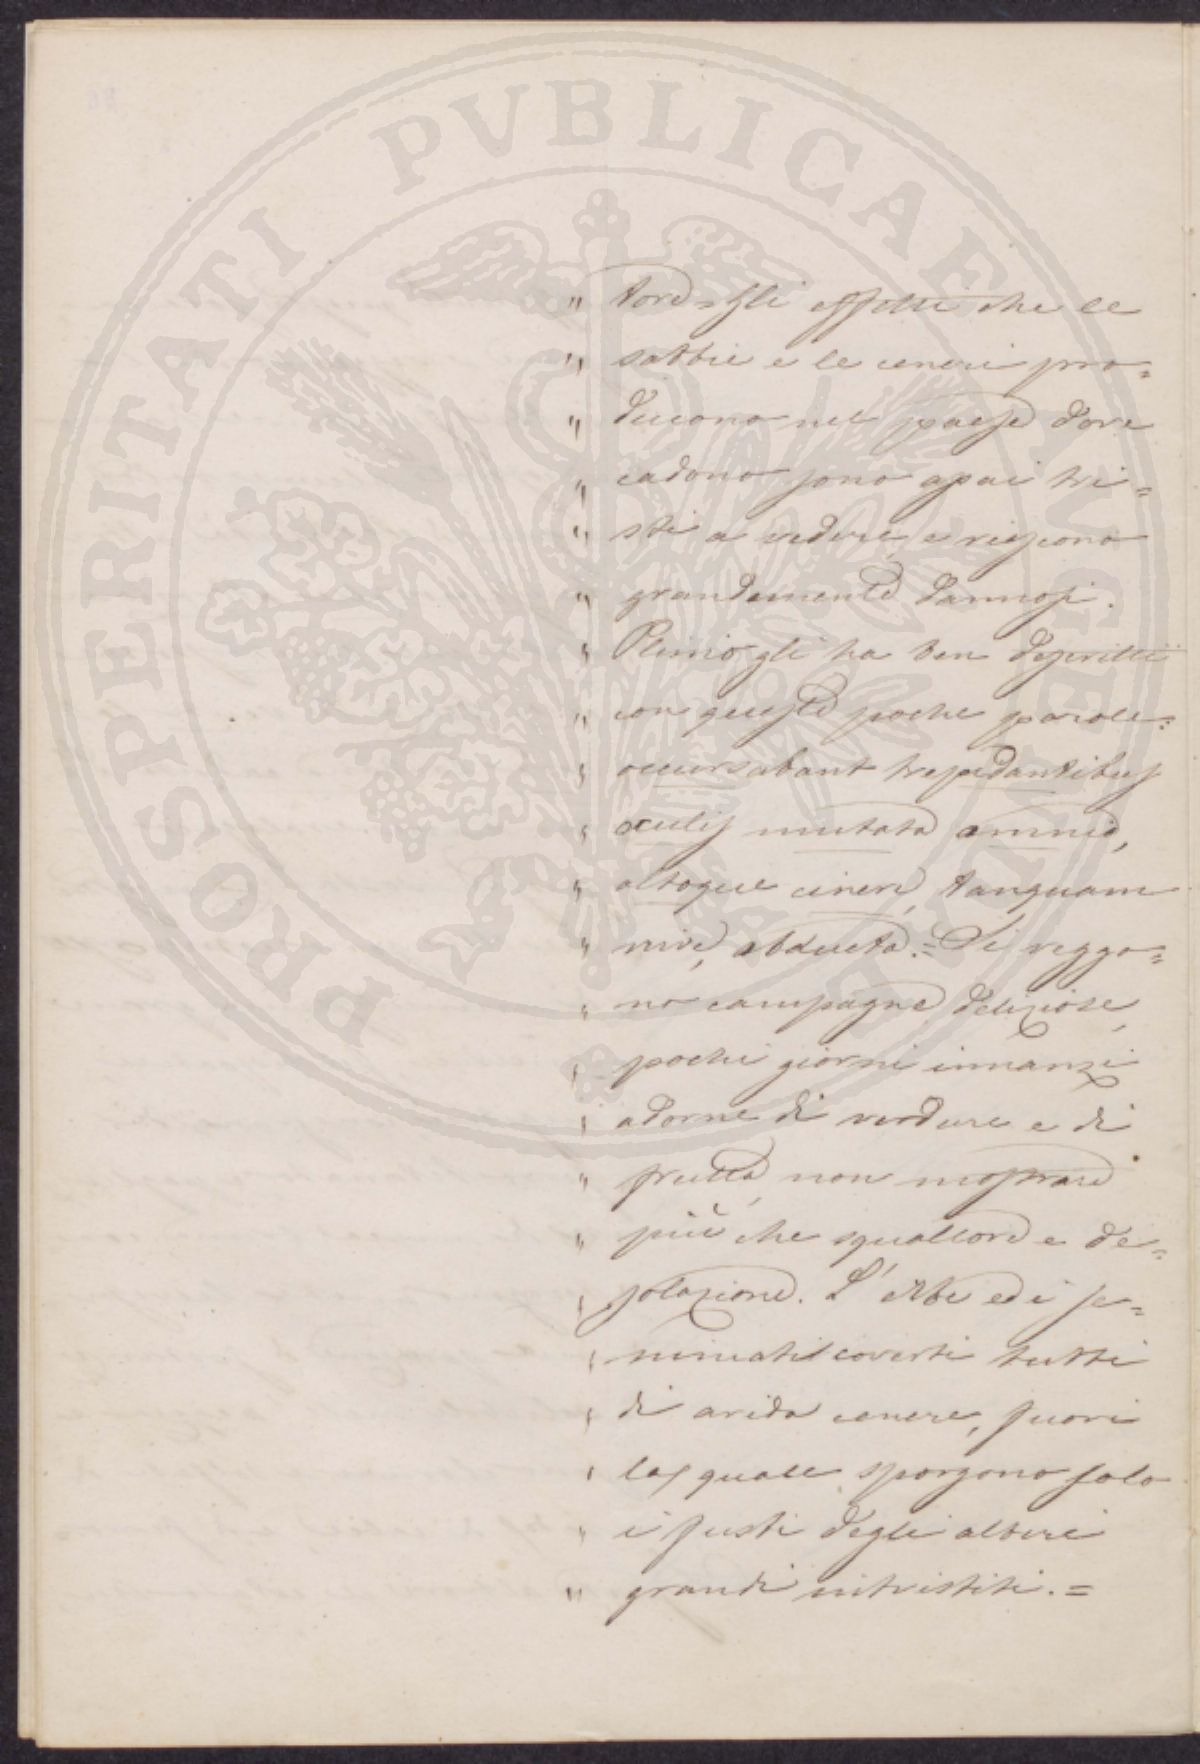 PROSPERITATI PVBLICAE AVGENDAE
" tore = Gli effetti che le
" sabbie e le ceneri pro=
" ducono nel paese dove
" cadono sono assai tri=
" sti a vedere, e riescono
" grandemente dannosi.
" Plinio gli ha ben descritti
" con queste poche parole:
" occursabant trepidantibus
" oculis mutata omnia,
" altoque cinere, tanquam
" nive, obducta. = Si veggo=
" no campagne deliziose,
" pochi giorni innanzi
" adorne di verdure e di
" frutta, non mostrare
" più che squallore e de=
" solazione. L'erbe ed i se=
" minati coverti tutti
" di arida cenere, fuori
" la quale sporgono solo
" i fusti degli alberi
" grandi intristiti. =